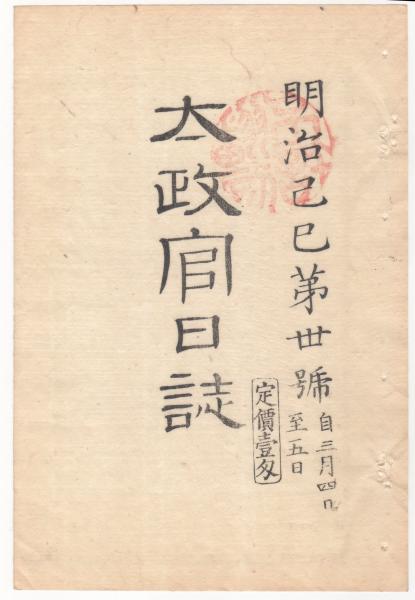 明治己巳第丗號
自三月四日
至五日
定價壹匁
太政官日誌